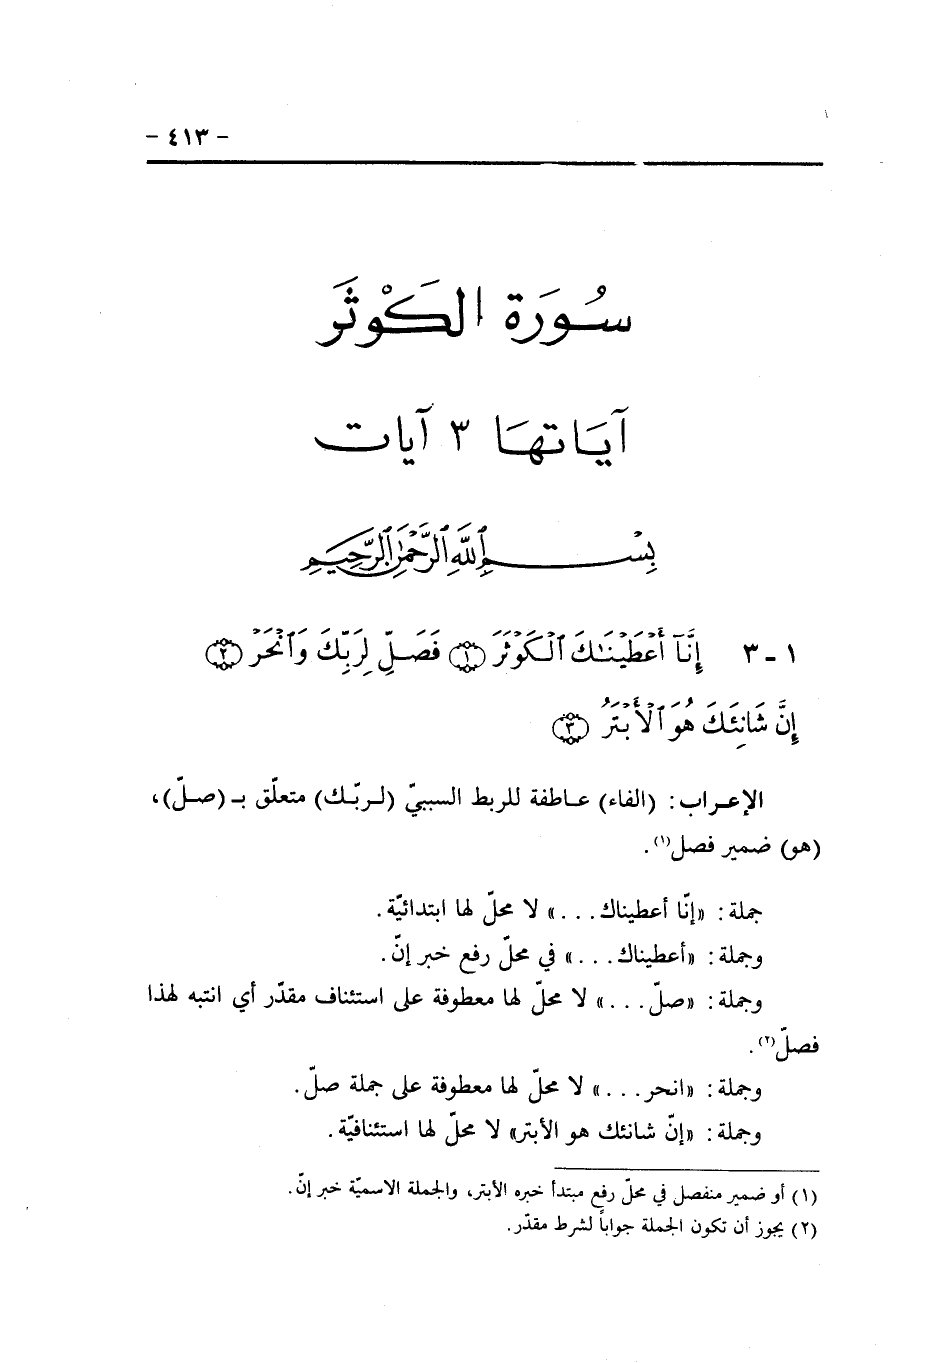 - ٤١٣ -
سُورَة الكَوْثَر
آيَاتهَا ٣ آيات
بِسْمِ ٱللَّهِ ٱلرَّحْمَٰنِ ٱلرَّحِيمِ
١ - ٣ إِنَّآ أَعْطَيْنَٰكَ ٱلْكَوْثَرَ ۝١ فَصَلِّ لِرَبِّكَ وَٱنْحَرْ ۝٢
إِنَّ شَانِئَكَ هُوَ ٱلْأَبْتَرُ ۝٣
الإعراب: (الفاء) عاطفة للربط السببيّ (لربّك) متعلّق بـ (صلّ)،
(هو) ضمير فصل(١).
جملة: «إنّا أعطيناك...» لا محلّ لها ابتدائيّة.
وجملة: «أعطيناك...» في محلّ رفع خبر إنّ.
وجملة: «صلّ...» لا محلّ لها معطوفة على استئناف مقدّر أي انتبه لهذا
فصلّ(٢).
وجملة: «انحر...» لا محلّ لها معطوفة على جملة صلّ.
وجملة: «إنّ شانئك هو الأبتر» لا محلّ لها استئنافيّة.
(١) أو ضمير منفصل في محلّ رفع مبتدأ خبره الأبتر، والجملة الاسميّة خبر إنّ.
(٢) يجوز أن تكون الجملة جواباً لشرط مقدّر.